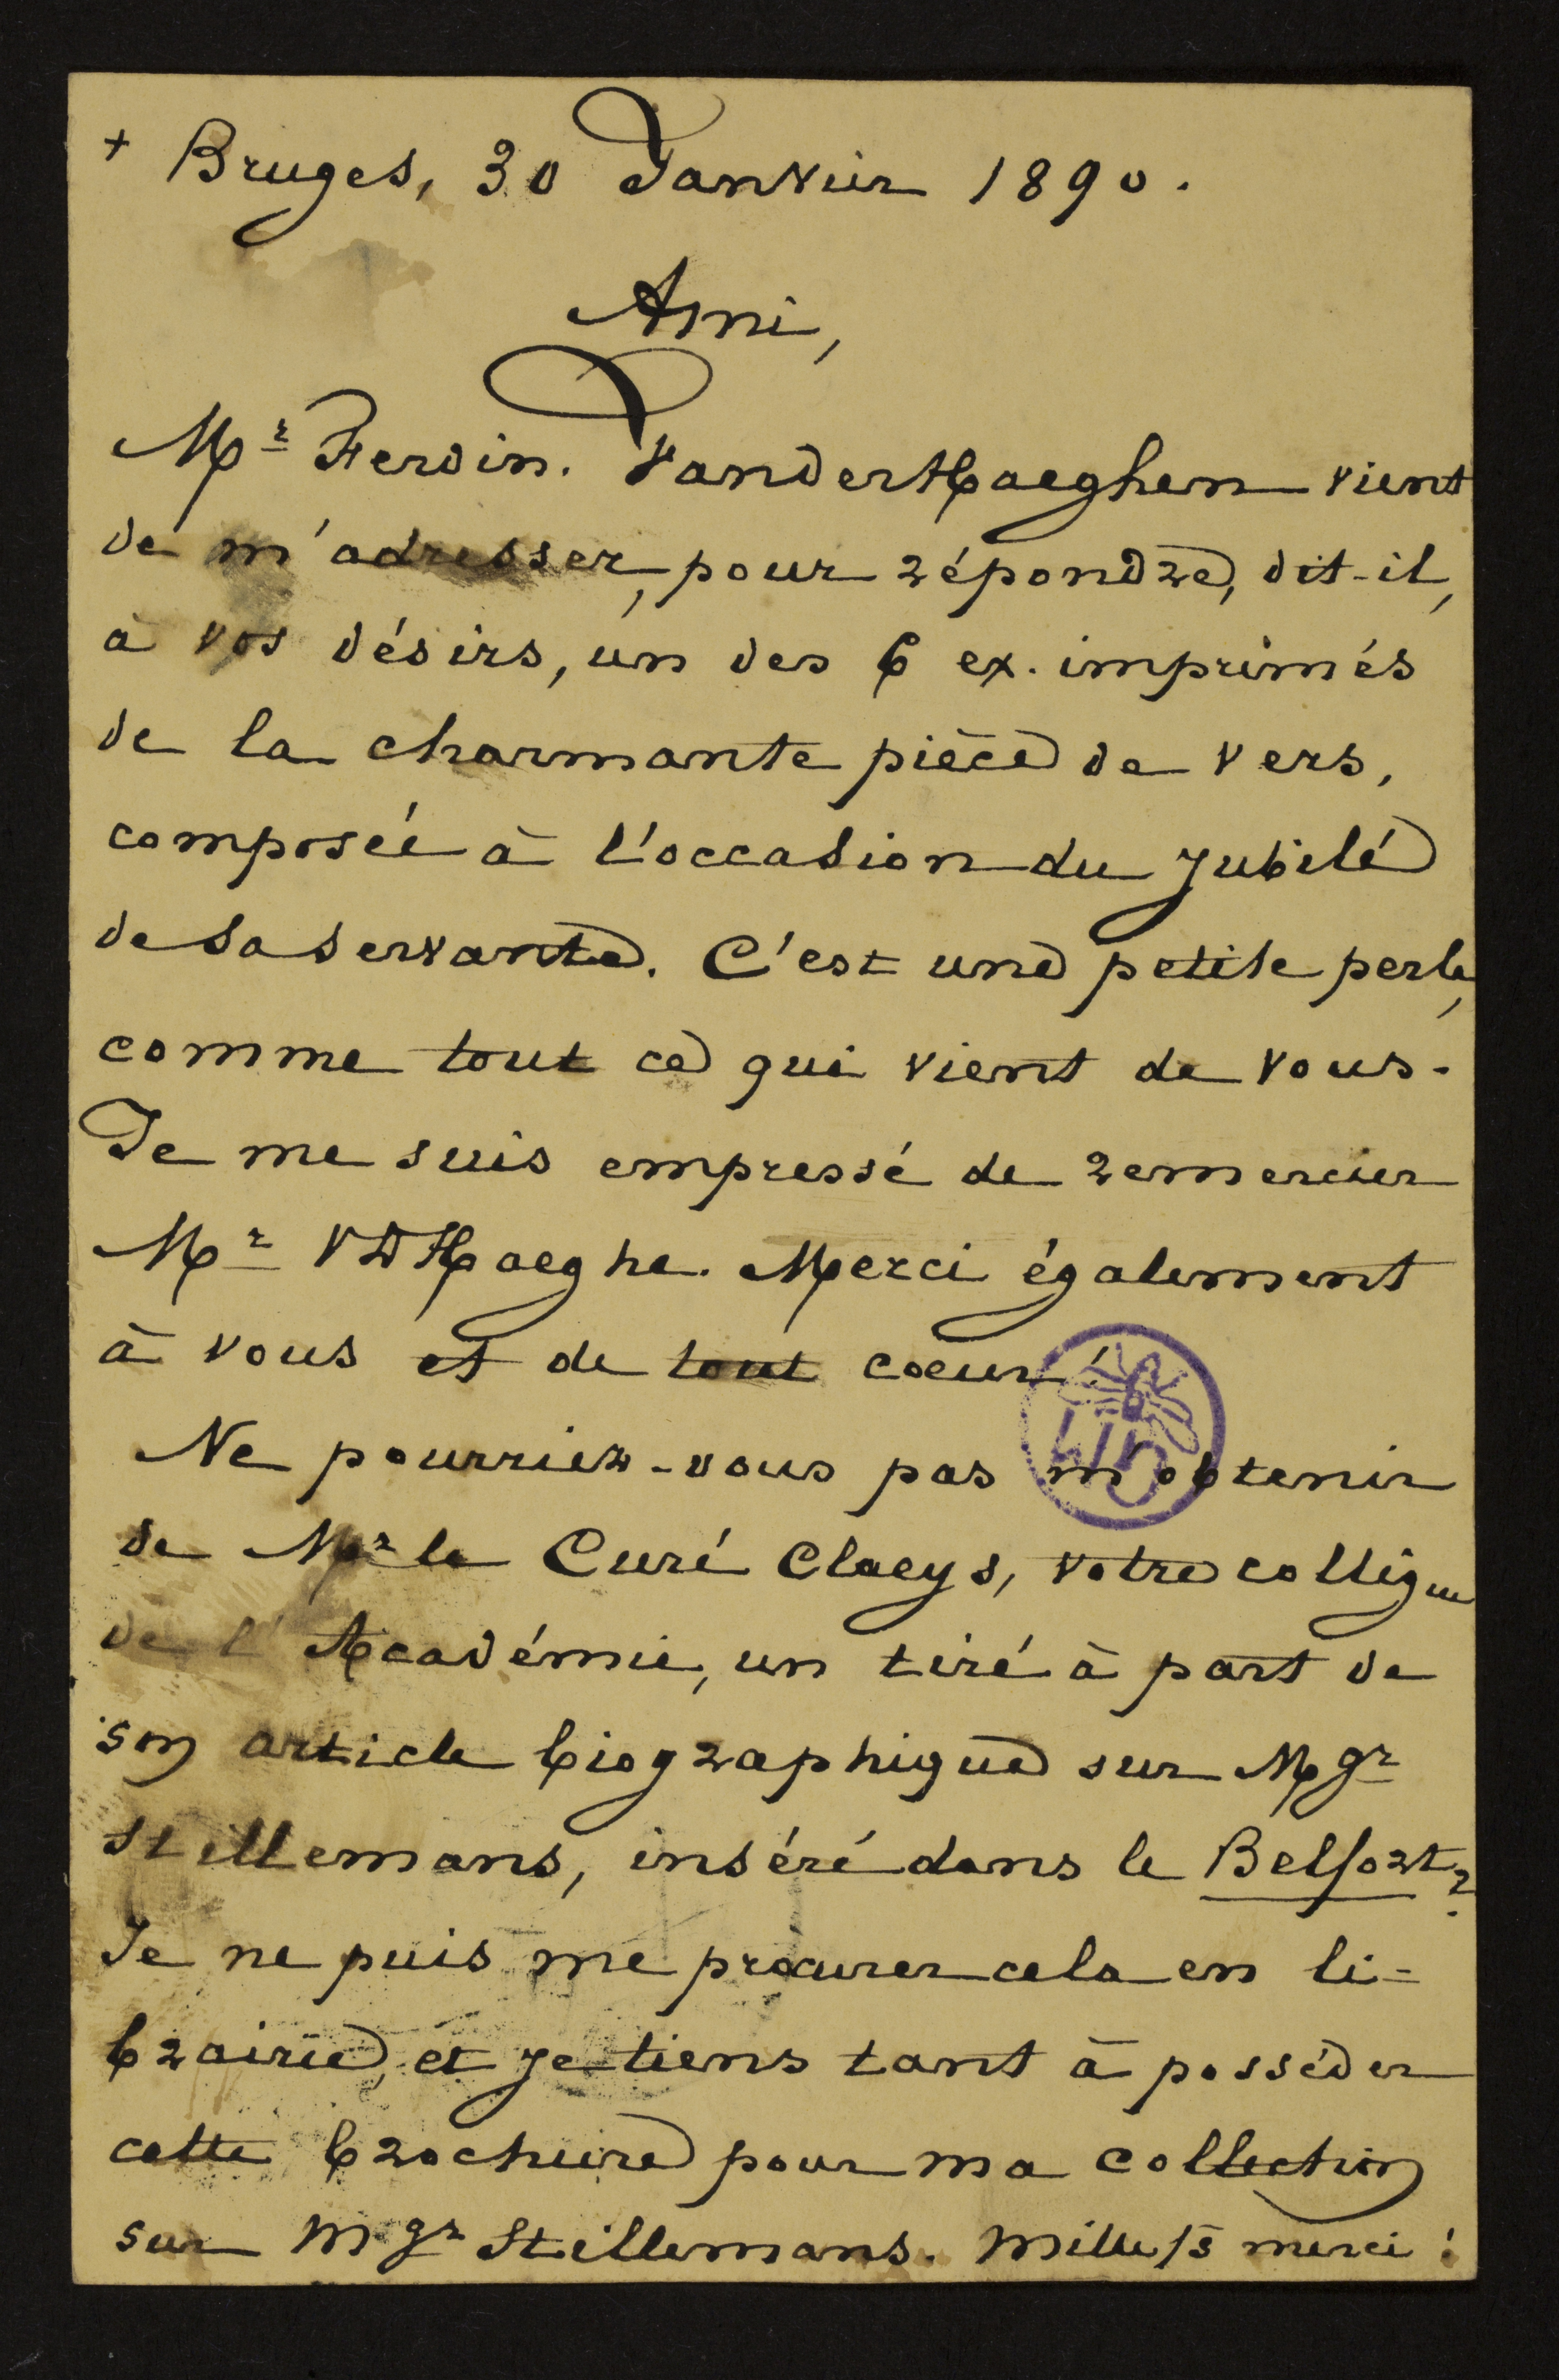 + Bruges, 30 Janvier 1890.
Ami,
Mr Ferdin. VanderHaeghen vient
de m'adresser, pour répondre, dit-il,
à vos désirs, un des 6 ex. imprimés
de la charmante pièce de vers,
composée à l'occasion du jubilé
de sa servante. C'est une petite perle,
comme tout ce qui vient de vous.
Je me suis empressé de remercier
Mr VDHaeghe. Merci également
à vous et de tout coeur!
Ne pourriez-vous pas m'obtenir
de Mr le Curé Claeys, votre collègue
de l'Académie, un tiré à part de
son article biographique sur Mgr
Stillemans, inséré dans le Belfort?
Je ne puis me procurer cela en li=
brairie, et je tiens tant à posséder
cette brochure pour ma collection
sur Mgr Stillemans. Mille fs merci!